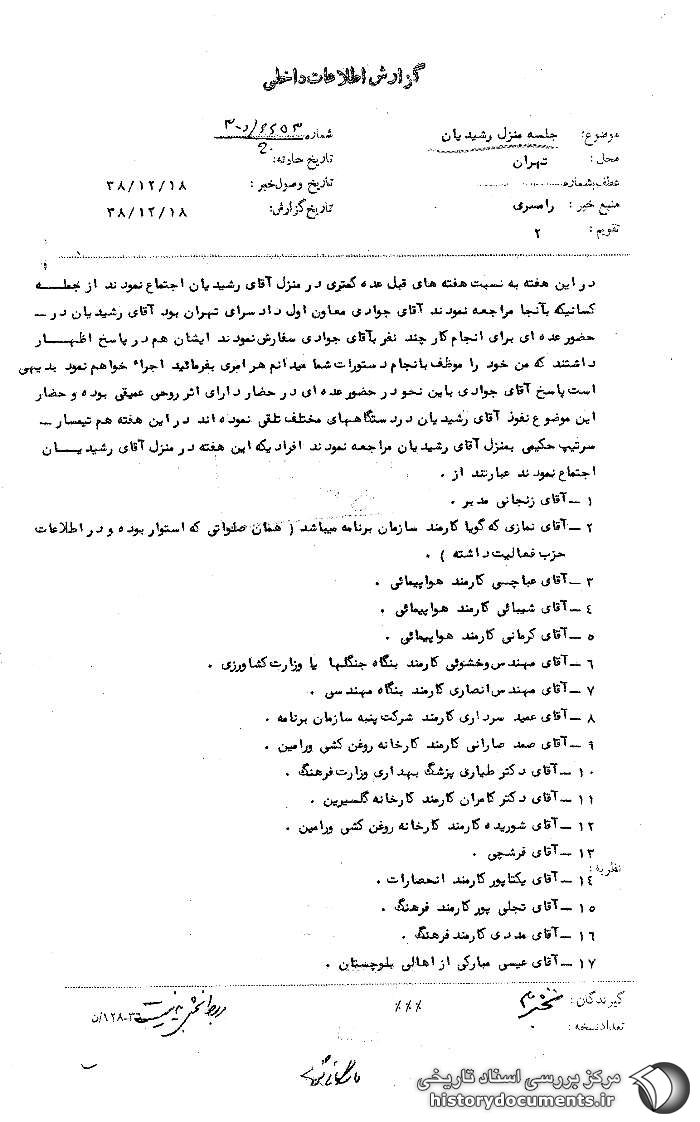 گزارش اطلاعات داخلی
موضوع: جلسه منزل رشیدیان
شماره
محل: تهران
تاریخ حادثه:
عطف بشماره
تاریخ وصول خبر: ۳۸/۱۲/۱۸
منبع خبر: رامسری
تاریخ گزارش: ۳۸/۱۲/۱۸
تقویم: ۲
در این هفته به نسبت هفته های قبل عده کمتری در منزل آقای رشیدیان اجتماع نمودند از جمله
کسانیکه بآنجا مراجعه نمودند آقای جوادی معاون اول دادسرای تهران بود آقای رشیدیان در
حضور عده ای برای انجام کار چند نفر بآقای جوادی سفارش نمودند ایشان هم در پاسخ اظهار
داشتند که من خود را موظف بانجام دستورات شما میدانم هر امری بفرمائید اجراء خواهم نمود بدیهی
است پاسخ آقای جوادی باین نحو در حضور عده ای در حضار دارای اثر روحی عمیقی بوده و حضار
این موضوع نفوذ آقای رشیدیان در دستگاههای مختلف تلقی نموده اند در این هفته هم تیمسار
سرتیپ حکیمی بمنزل آقای رشیدیان مراجعه نمودند افرادیکه این هفته در منزل آقای رشیدیان
اجتماع نمودند عبارتند از .
۱ ــ آقای زنجانی مدبر .
۲ ــ آقای نمازی که گویا کارمند سازمان برنامه میباشد ( همان صلواتی که استوار بوده و در اطلاعات
حزب فعالیت داشته ) .
۳ ــ آقای عباچسی کارمند هواپیمائی .
۴ ــ آقای شیبائی کارمند هواپیمائی .
۵ ــ آقای کرمانی کارمند هواپیمائی .
۶ ــ آقای مهندس وخشوئی کارمند بنگاه جنگلها یا وزارت کشاورزی .
۷ ــ آقای مهندس انصاری کارمند بنگاه مهندسی .
۸ ــ آقای عمید سرداری کارمند شرکت پنبه سازمان برنامه .
۹ ــ آقای صمد صارانی کارمند کارخانه روغن کشی ورامین .
۱۰ ــ آقای دکتر طیاری پزشگ بهداری وزارت فرهنگ .
۱۱ ــ آقای دکتر کامران کارمند کارخانه گلسیرین .
۱۲ ــ آقای شوریده کارمند کارخانه روغن کشی ورامین .
۱۳ ــ آقای فرشچی .
نظریه:
۱۴ ــ آقای یکتاپور کارمند انحصارات .
۱۵ ــ آقای تجلی پور کارمند فرهنگ .
۱۶ ــ آقای مددی کارمند فرهنگ .
۱۷ ــ آقای عیسی مبارکی از اهالی بلوچستان .
گیرندگان:
تعداد نسخه:
مرکز بررسی اسناد تاریخی
historydocuments.ir